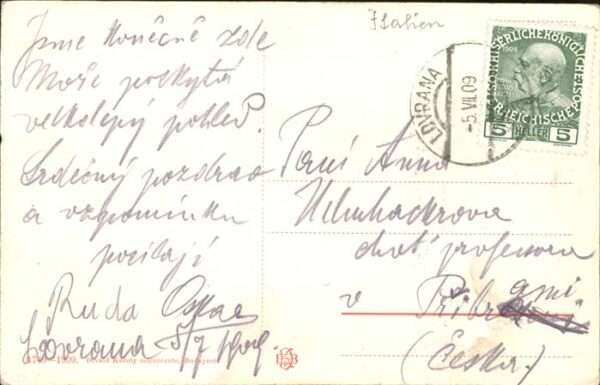 Italien
Jsme konečně zde
Moře poskytá
velkolepý pohled.
Srdečný pozdrav
a vzpomínku
posílají
Ruda Oskar
Lovrana 5/7 1909.
LOVRANA
-5.VII.09
1908
5 HELLER 5
Paní Anna
choť professora
v Příbrami
(Česko.)